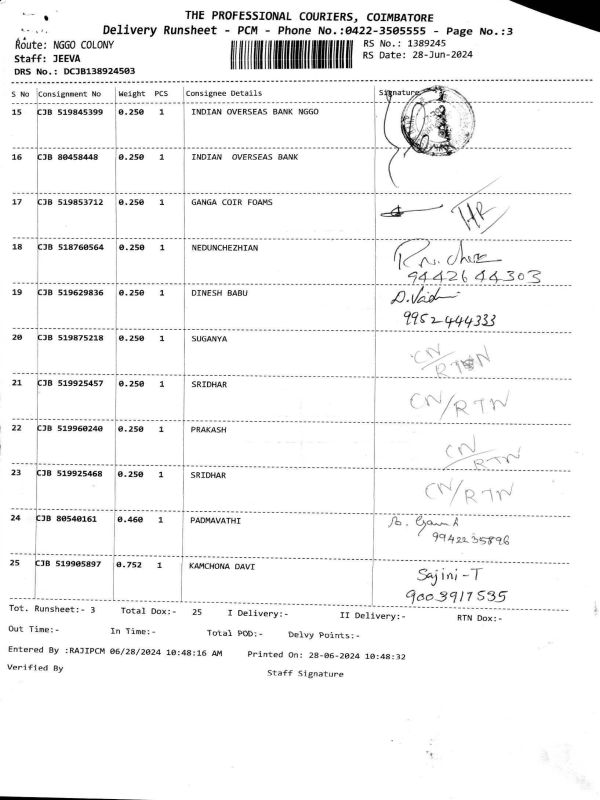 THE PROFESSIONAL COURIERS, COIMBATORE
Delivery Runsheet - PCM - Phone No.:0422-3505555 - Page No.:3
Route: NGGO COLONY RS No.: 1389245
Staff: JEEVA RS Date: 28-Jun-2024
DRS No.: DCJB138924503
S No Consignment No Weight PCS Consignee Details Signature
15 CJB 519845399 0.250 1 INDIAN OVERSEAS BANK NGGO
16 CJB 80458448 0.250 1 INDIAN OVERSEAS BANK
17 CJB 519853712 0.250 1 GANGA COIR FOAMS HR
18 CJB 518760564 0.250 1 NEDUNCHEZHIAN
9442644303
19 CJB 519629836 0.250 1 DINESH BABU
9952444333
20 CJB 519875218 0.250 1 SUGANYA CN/RTN
21 CJB 519925457 0.250 1 SRIDHAR CN/RTN
22 CJB 519960240 0.250 1 PRAKASH CN/RTN
23 CJB 519925468 0.250 1 SRIDHAR CN/RTN
24 CJB 80540161 0.460 1 PADMAVATHI
9942235896
25 CJB 519905897 0.752 1 KAMCHONA DAVI Sajini-T
9003917535
Tot. Runsheet:- 3 Total Dox:- 25 I Delivery:- II Delivery:- RTN Dox:-
Out Time:- In Time:- Total POD:- Delvy Points:-
Entered By :RAJIPCM 06/28/2024 10:48:16 AM Printed On: 28-06-2024 10:48:32
Verified By Staff Signature